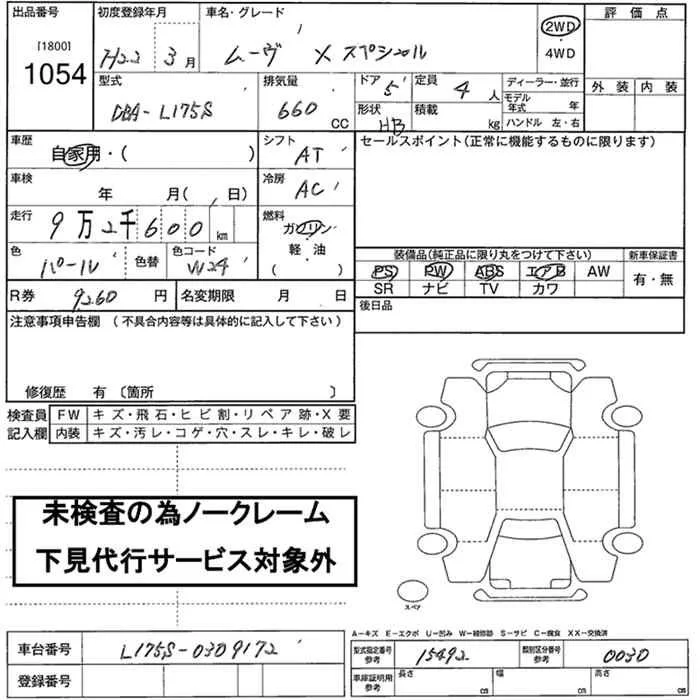 出品番号 初度登録年月 車名・グレード 評価点
[1800] 1054 H22 3月 ムーヴ X スペシャル 2WD・4WD
型式 排気量 ドア 定員 ディーラー・並行 外装 内装
DBA-L175S 660 CC 5 4人 モデル年式 年
形状 積載 HB kg ハンドル 左・右
車歴 自家用・( ) シフト AT セールスポイント(正常に機能するものに限ります)
車検 年 月( 日) 冷房 AC
走行 9万2千600km 燃料 ガソリン・軽・油 ( )
色 パール 色替 色コード W24
装備品(純正品に限り丸をつけて下さい) 新車保証書
PS PW ABS エアB AW 有・無
SR ナビ TV カワ
R券 9260円 名変期限 月 日 後日品
注意事項申告欄 (不具合内容等は具体的に記入して下さい)
修復歴 有 〔箇所 〕
検査員 FW キズ・飛石・ヒビ割・リペア跡・X要
記入欄 内装 キズ・汚レ・コゲ・穴・スレ・キレ・破レ
未検査の為ノークレーム
下見代行サービス対象外
スペア
A−キズ E−エクボ U−凹み W−補修跡 S−サビ C−腐食 XX−交換済
車台番号 L175S-0309172 型式指定番号 参考 15492 類別区分番号 参考 0030
登録番号 車庫証明用 参考 長さ cm 幅 cm 高さ cm